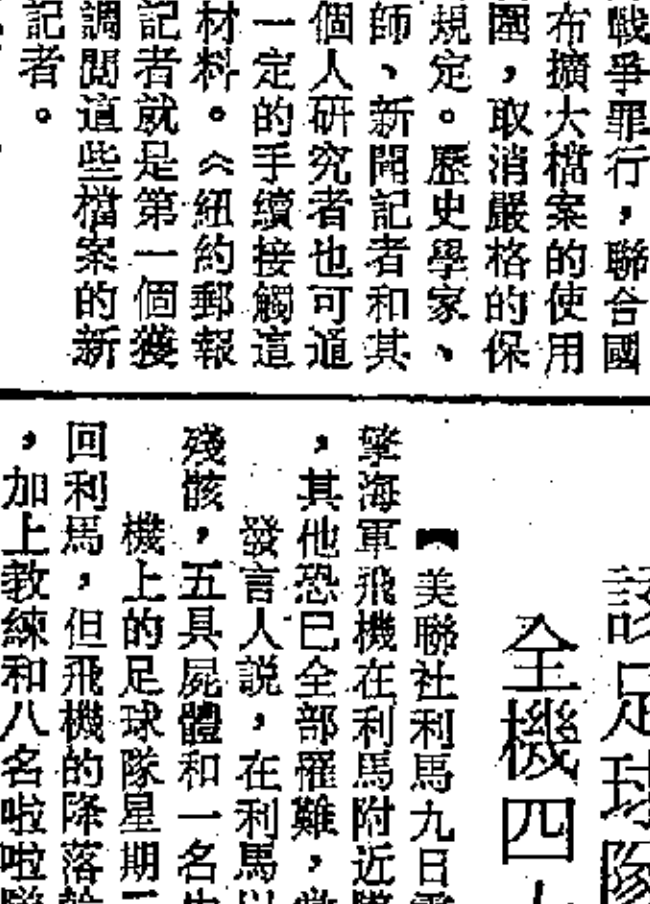 戰爭罪行，聯合國
布擴大檔案的使用
圍，取消嚴格的保
規定。歷史學家、
師、新聞記者和其
個人研究者也可通
一定的手續接觸這
材料。《紐約郵報
記者就是第一個獲
調閱這些檔案的新
記者。
足球隊
全機四
【美聯社利馬九日電
擎海軍飛機在利馬附近
，其他恐已全部罹難，
發言人説，在利馬以
殘骸，五具屍體和一名
機上的足球隊星期
回利馬，但飛機的降落
，加上教練和八名啦啦隊